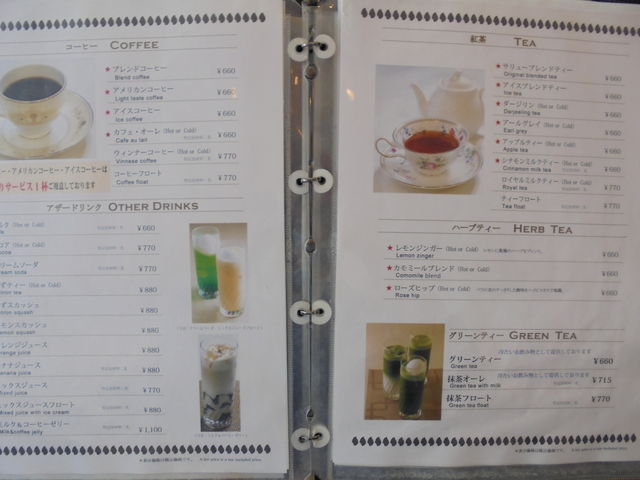 コーヒー COFFEE
★ブレンドコーヒー ¥660
Blend coffee
★アメリカンコーヒー ¥660
Light taste coffee
★アイスコーヒー ¥660
Ice coffee
★カフェ・オーレ (Hot or Cold) ¥660
Cafe au lait
ウィンナーコーヒー (Hot or Cold) ¥770
Vinnese coffee
コーヒーフロート ¥770
Coffee float
ー・アメリカンコーヒー・アイスコーヒーは
りサービス1杯ご用意しております
アザードリンク OTHER DRINKS
ルク (Hot or Cold) ¥660
コア (Hot or Cold) ¥770
リームソーダ ¥770
eam soda
ずティー (Hot or Cold) ¥880
ずスカッシュ ¥880
モンスカッシュ ¥880
emon squash
レンジジュース ¥880
range juice
ナナジュース ¥880
anana juice
ックスジュース ¥770
Mixed juice
ックスジュースフロート ¥880
Mixed juice with ice cream
ミルク&コーヒーゼリー ¥1,100
Milk&coffee jelly
紅茶 TEA
★サリューブレンドティー ¥660
Original blended tea
★アイスブレンドティー ¥660
Ice tea
★ダージリン (Hot or Cold) ¥660
Darjeeling tea
★アールグレイ (Hot or Cold) ¥660
Earl grey
★アップルティー (Hot or Cold) ¥660
Apple tea
★シナモンミルクティー (Hot or Cold) ¥660
Cinnamon milk tea
ロイヤルミルクティー (Hot or Cold) ¥770
Royal tea
ティーフロート ¥770
Tea float
ハーブティー HERB TEA
★レモンジンガー (Hot or Cold) ¥660
Lemon zinger
★カモミールブレンド (Hot or Cold) ¥660
Comomile blend
★ローズヒップ (Hot or Cold) ¥660
Rose hip
グリーンティー GREEN TEA
グリーンティー 冷たいお飲み物として提供しております ¥660
Green tea
抹茶オーレ 冷たいお飲み物として提供しております ¥715
Green tea with milk
抹茶フロート ¥770
Green tea float